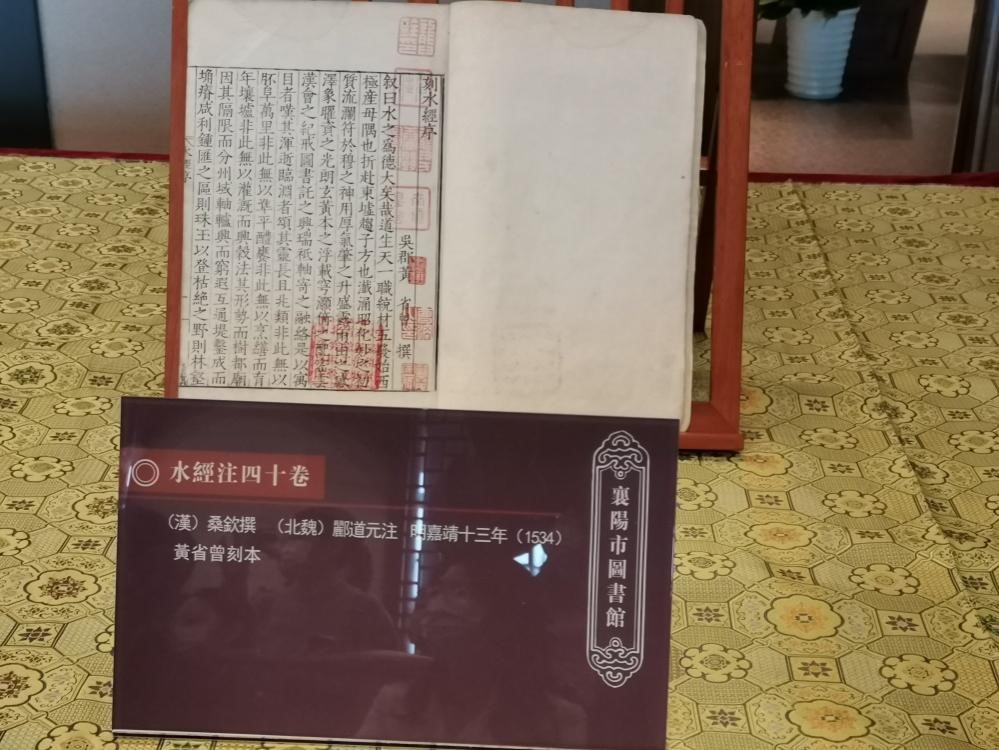 刻水經序
吳郡黃省曾撰
叙曰水之爲德大矣哉道生天一職統
極産毋隅也折赴東墟趨子方也瀸涌
質流瀾符於穆之神用厚氣肇之升盛
澤象曜資之光朗玄黃本之浮載穹
漢曾之紀戒圖書託之興瑞祇軸寄之融絡是以寓
目者嘆其渾逝臨淵者頌其靈長且兆類非此無以
胚阜萬里非此無以準平醴饔非此無以烹縫而育
年壤墟非此無以灌溉而興穀法其形勢而樹都廟
因其隔限而分州域軸轤興而窮遐互通堤鏧成而
埆瘠咸利鍾匯之區則珠玉以登枯絶之野則林
水經注四十卷
（漢）桑欽撰 （北魏）酈道元注 明嘉靖十三年（1534）
黃省曾刻本
襄陽市圖書館